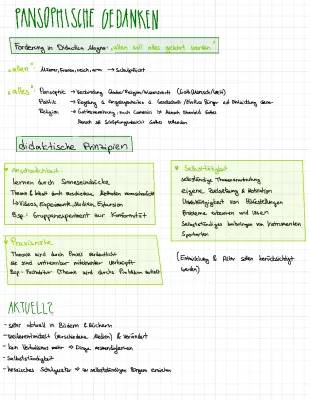 PANSOPHISCHE GEDANKEN
Forderung in Didactica Magna: „allen soll alles gelehrt werden"
„allen" Männer, Frauen, reich, arm → Schulpflicht
„alles" Pansophie → Verbindung Glaube/Religion/Wissenschaft (Gott/Mensch/Welt)
Politik → Regelung d. Angelegenheiten d. Gesellschaft
Religion → nach Comenius ist Mensch Ebenbild Gottes
Mensch als Schöpfungsbereich Gottes
didaktische Prinzipien
Anschaulichkeit
lernen durch Sinneseindrücke
Thema & Inhalt durch Methoden
↳ Videos, Experiment, Medien, Exkursion
Bsp.: Gruppenexperiment zur Konformität
Praxisnähe
Theorie wird durch Praxis verdeutlicht
sie sind untrennbar miteinander verknüpft
Bsp.: (Theorie wird durchs Praktikum vertieft)
Selbsttätigkeit
selbstständige Themenerarbeitung
eigene Zielsetzung & Motivation
Unabhängigkeit von Hilfestellungen
Probleme erkennen und lösen
Selbstständiges von Instrumenten
Sportarten
(Entwicklung & Alter sollen berücksichtigt
werden)
AKTUELL?
- sehr aktuell in Bildern & Büchern
- weiterentwickelt (verschiedene Medien) & verändert
- kein mehr → Dinge
- Selbstständigkeit
- hessisches Schulgesetz → zu selbstständigen Bürgern erreichen